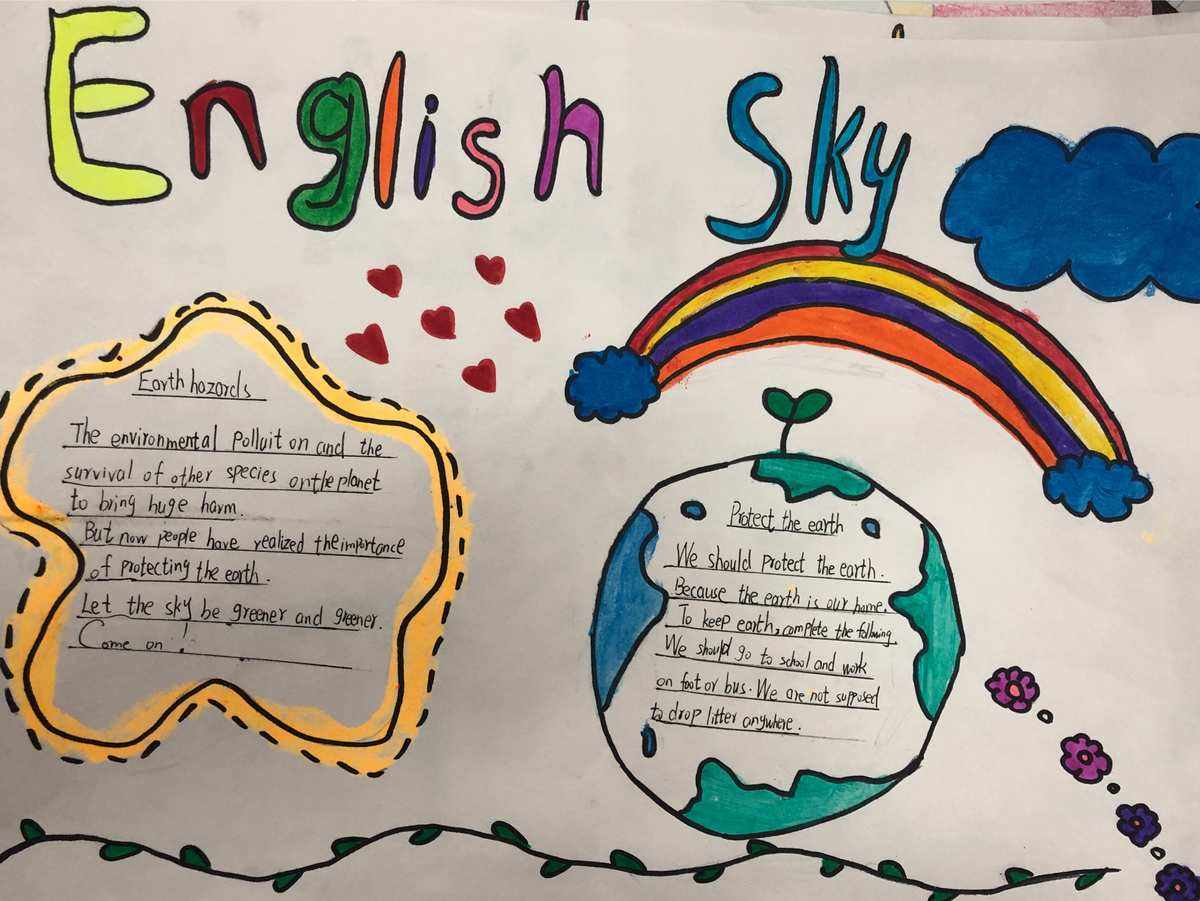 English Sky
Earth hazards
The environmental polluit on and the
survival of other species on the planet
to bring huge harm.
But now people have realized the importance
of protecting the earth.
Let the sky be greener and greener.
Come on !
Protect the earth
We should protect the earth.
Because the earth is our home.
To keep earth, complete the following
We should go to school and work
on foot or bus. We are not supposed
to drop litter anywhere.